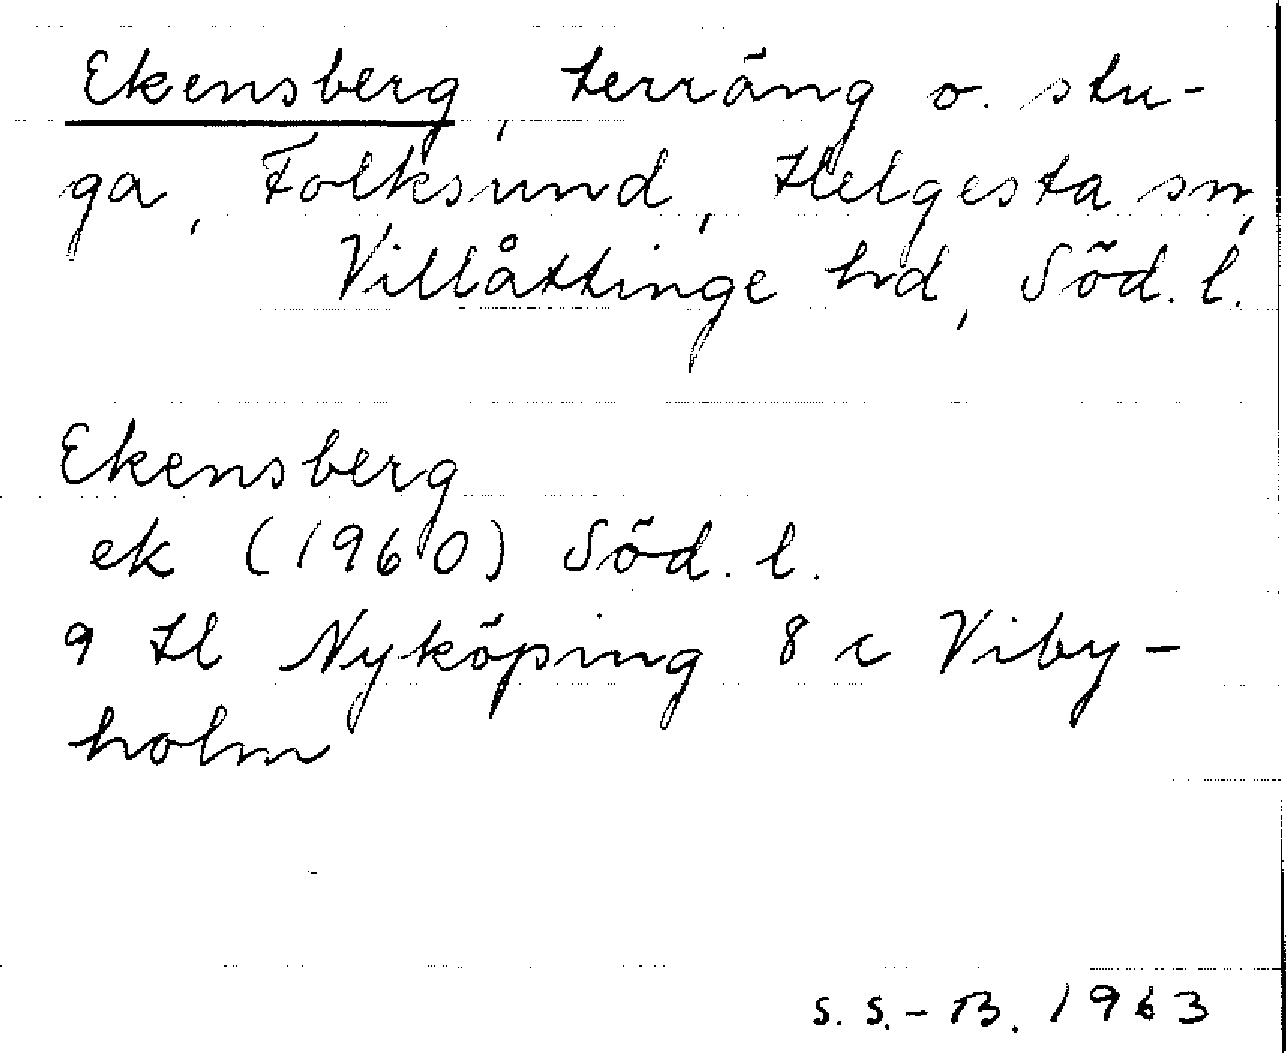 Ekensberg, terräng o. stu-
ga, Folksund, Helgesta sn,
Villåttinge hd, Söd. l.
Ekensberg
ek (1960) Söd. l.
9 H Nyköping 8 c Viby-
holm
S. S.-B. 1963